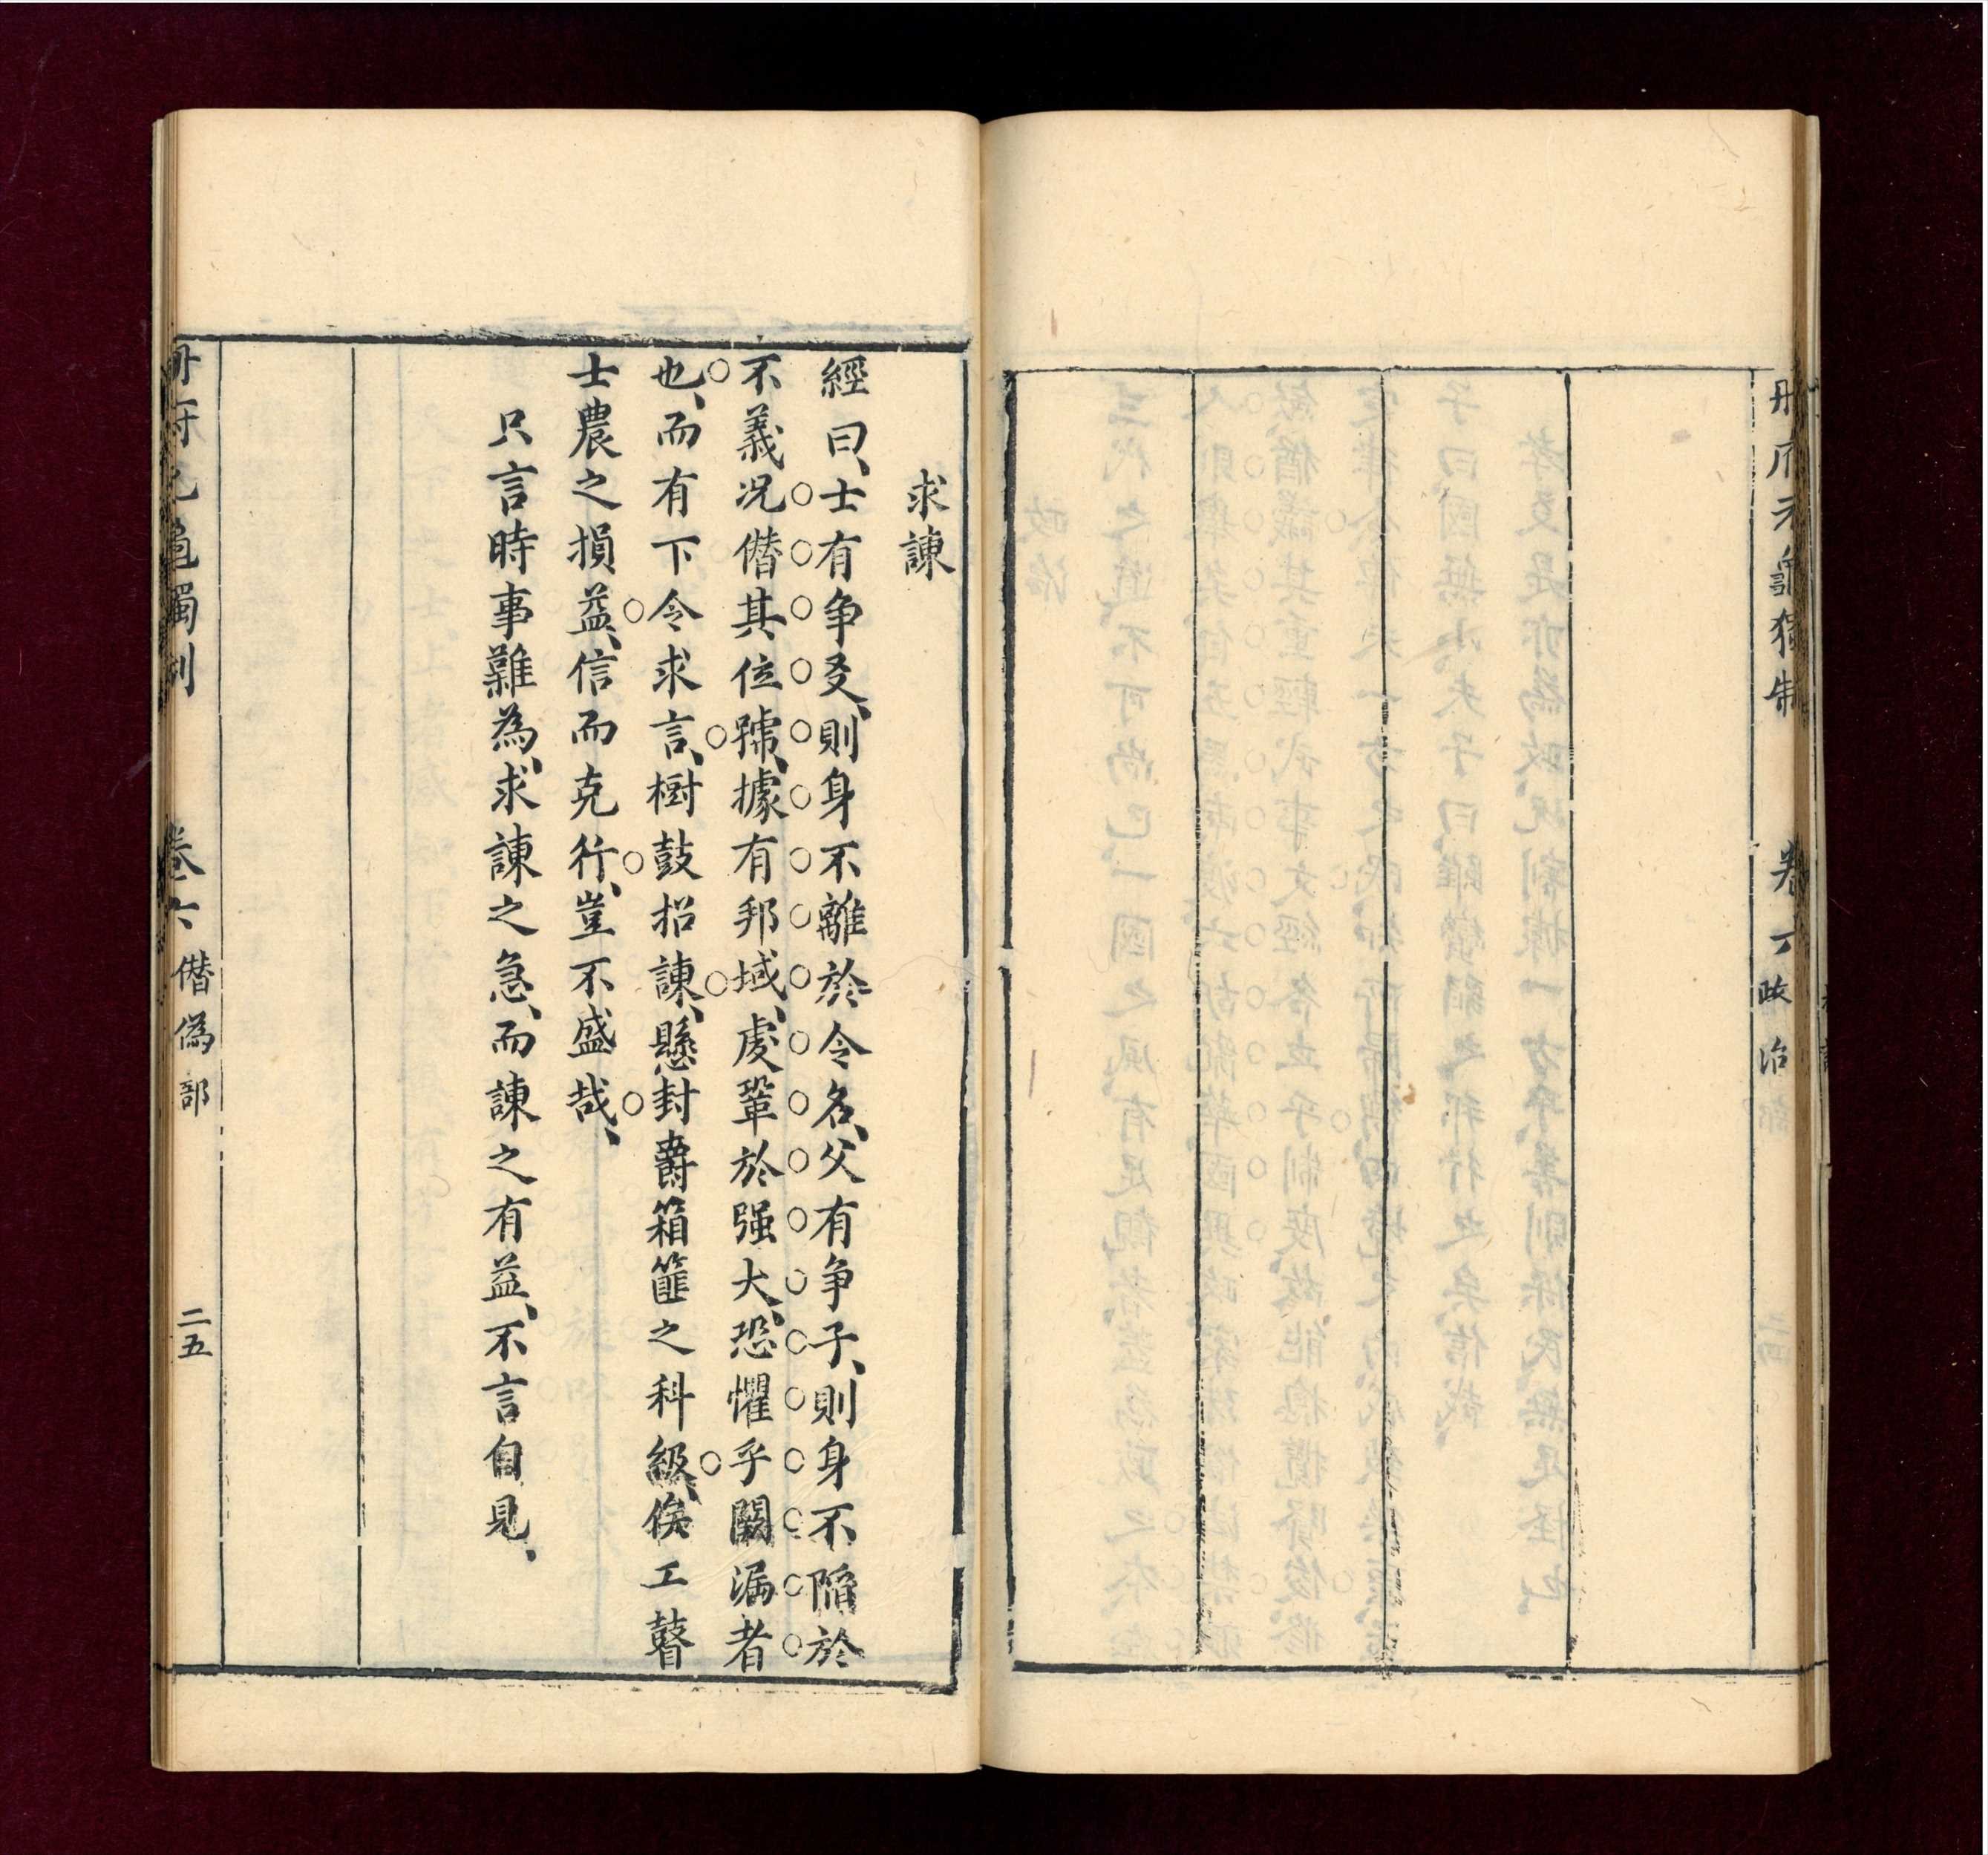 冊府元龜獨制
卷六政治部
求諫
經曰、士有争友、則身不離於令名、父有争子、則身不陷於
不義况僭其位號、據有邦域、處鞏於强大、恐懼乎闕漏者
也、而有下令求言、樹鼓招諫、懸封爵箱篚之科級、俟工瞽
士農之損益、信而克行、豈不盛哉、
只言時事難為、求諫之急、而諫之有益、不言自見、
冊府元龜獨制
卷六僭偽部
二五